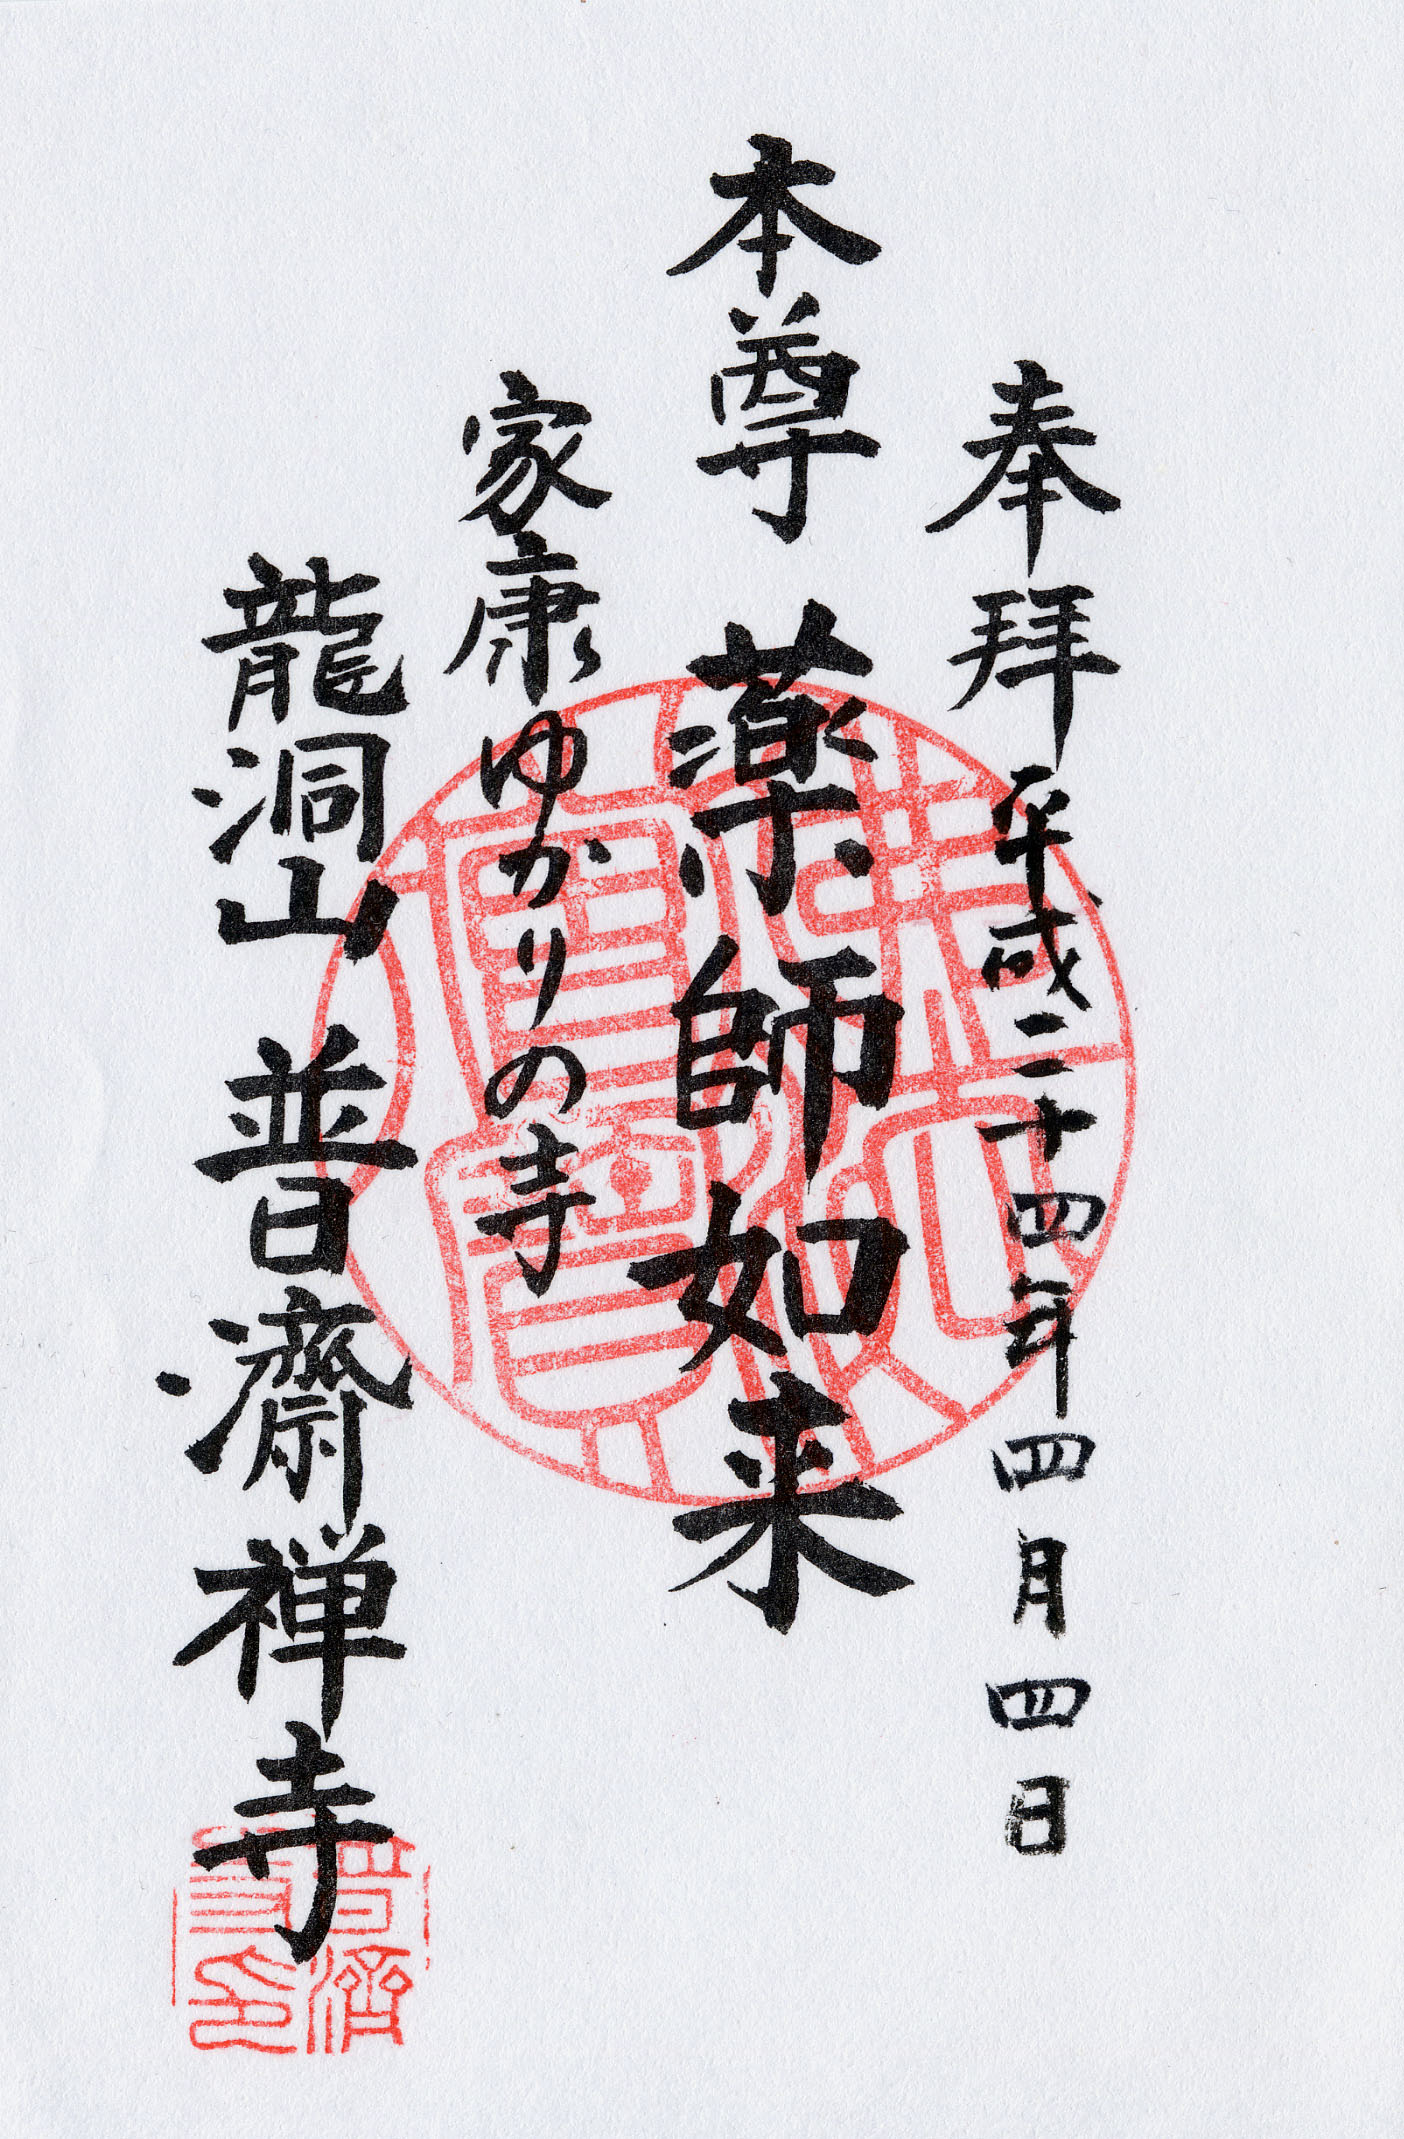 奉拝 平成二十四年四月四日
本尊 薬師如来
家康ゆかりの寺
龍洞山 普濟禅寺